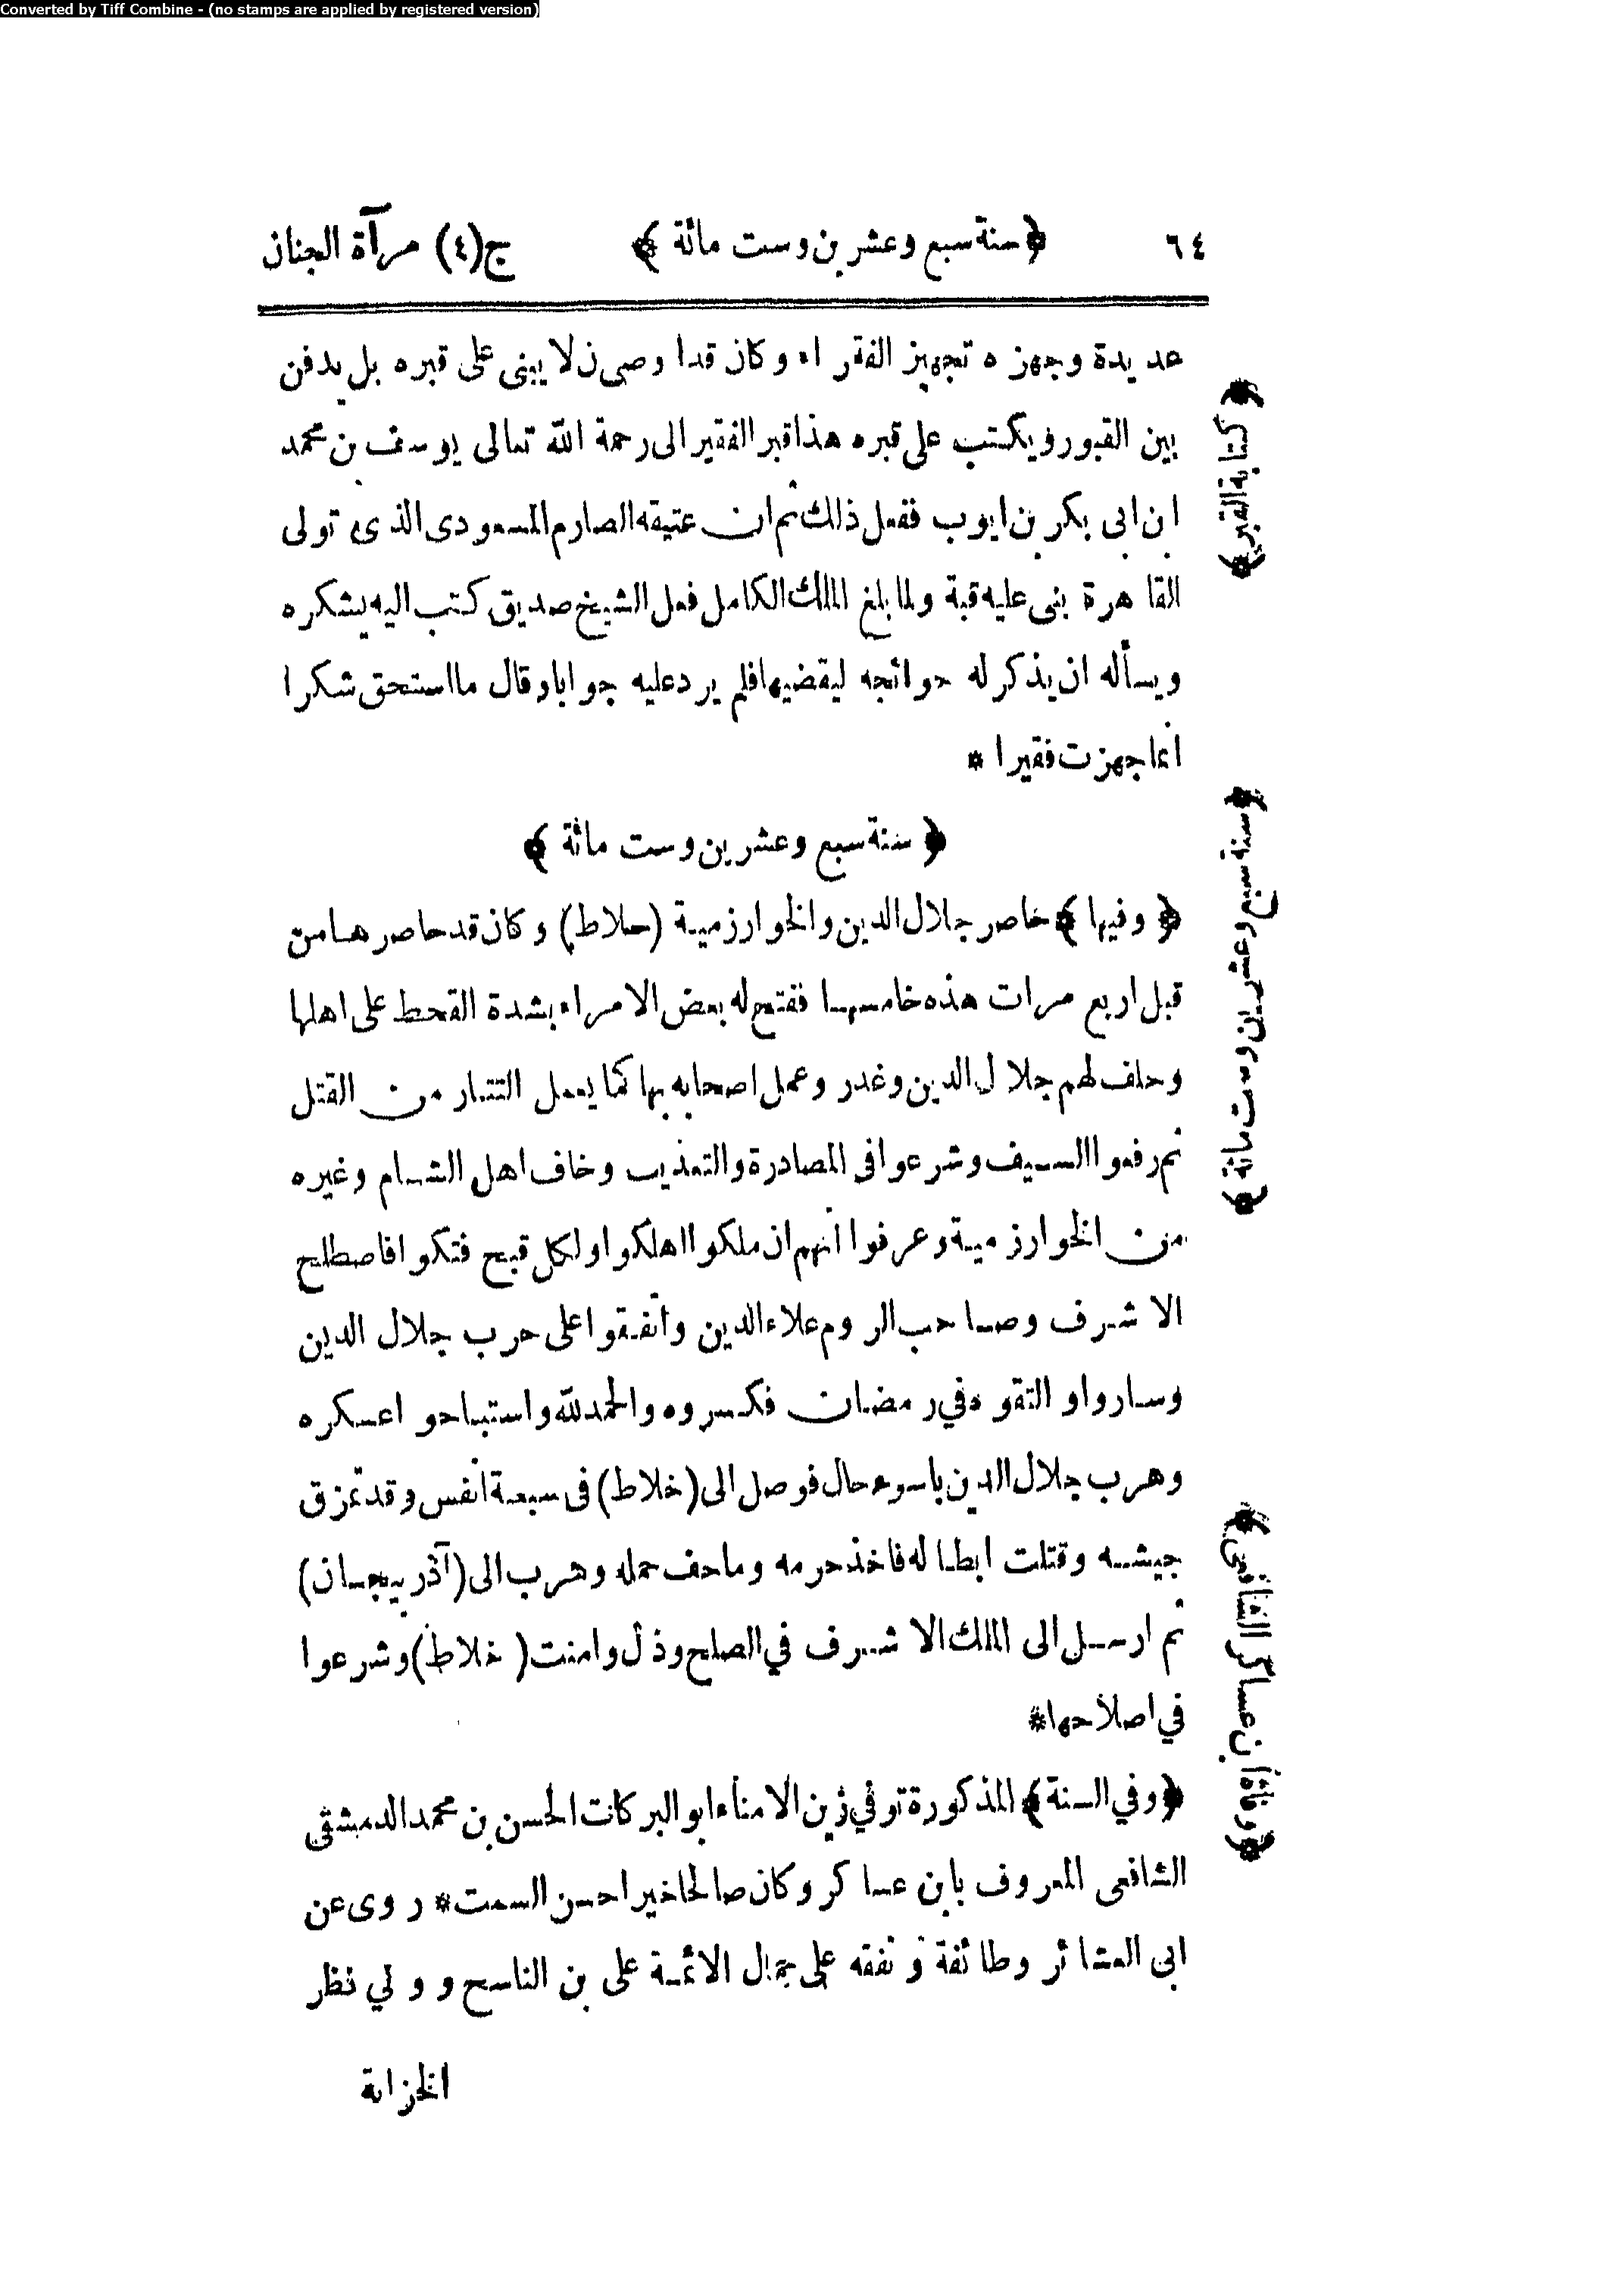 Converted by Tiff Combine - (no stamps are applied by registered version)
٦٤ ﴿ سنة سبع وعشرين وست مائة ﴾ ج(٤) مرآة الجنان
عديدة وجهزه تجهيز الفقراء وكان قد اوصى ن لا يبنى على قبره بل يدفن
بين القبور ويكتب على قبره هذا قبر الفقير الى رحمة الله تعالى يوسف بن محمد
ابن ابى بكر بن ايوب ففعل ذلك ثم ان عتيقه الصارم المسعودى الذى تولى
القاهرة بنى عليه قبة ولما بلغ الملك الكامل فعل الشيخ صديق كتب اليه يشكره
ويسأله ان يذكر له حوائجه ليقضيها فلم يرد عليه جوابا وقال ما استحق شكرا
انما جهزت فقيرا *
﴿ سنة سبع وعشرين وست مائة ﴾
﴿ وفيها ﴾ حاصر جلال الدين والخوارزمية (خلاط) وكان قد حاصرها من
قبل اربع مرات هذه خامسها ففتح له بعض الامراء بشدة القحط على اهلها
وحلف لهم جلال الدين وغدر وعمل اصحابه بها كما يعمل التتار من القتل
ثم رفعوا السيف وشرعوا فى المصادرة والتعذيب وخاف اهل الشام وغيره
من الخوارزمية وعرفوا انهم ان ملكوا اهلكوا ولكل قبح فتكوا فاصطلح
الاشرف وصاحب الروم علاء الدين واتفقوا على حرب جلال الدين
وساروا والتقوه في رمضان فكسروه والحمد لله واستباحوا عسكره
وهرب جلال الدين باسوء حال فوصل الى (خلاط) فى سبعة انفس وقد تمزق
جيشه وقتلت ابطاله فاخذ حرمه وما خف حمله وهرب الى (آذربيجان)
ثم ارسل الى الملك الاشرف في الصلح وذل وامنت (خلاط) وشرعوا
في اصلاحها*
﴿ وفي السنة ﴾ المذكورة توفي زين الامناء ابو البركات الحسن بن محمد الدمشقى
الشافعى المعروف بابن عساكر وكان صالحا خيرا حسن السمت* روى عن
ابى العشائر وطائفة وتفقه على جمال الائمة على بن الناسح وولي نظر
الخزانة
﴿ كتابة القبر ﴾
﴿ سنة سبع وعشرين وست مائة ﴾
﴿ وفاة ابن عساكر الشافعى ﴾